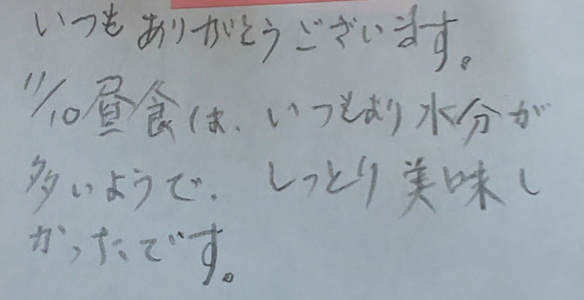 いつもありがとうございます。
11/10昼食は、いつもより水分が
多いようで、しっとり美味し
かったです。